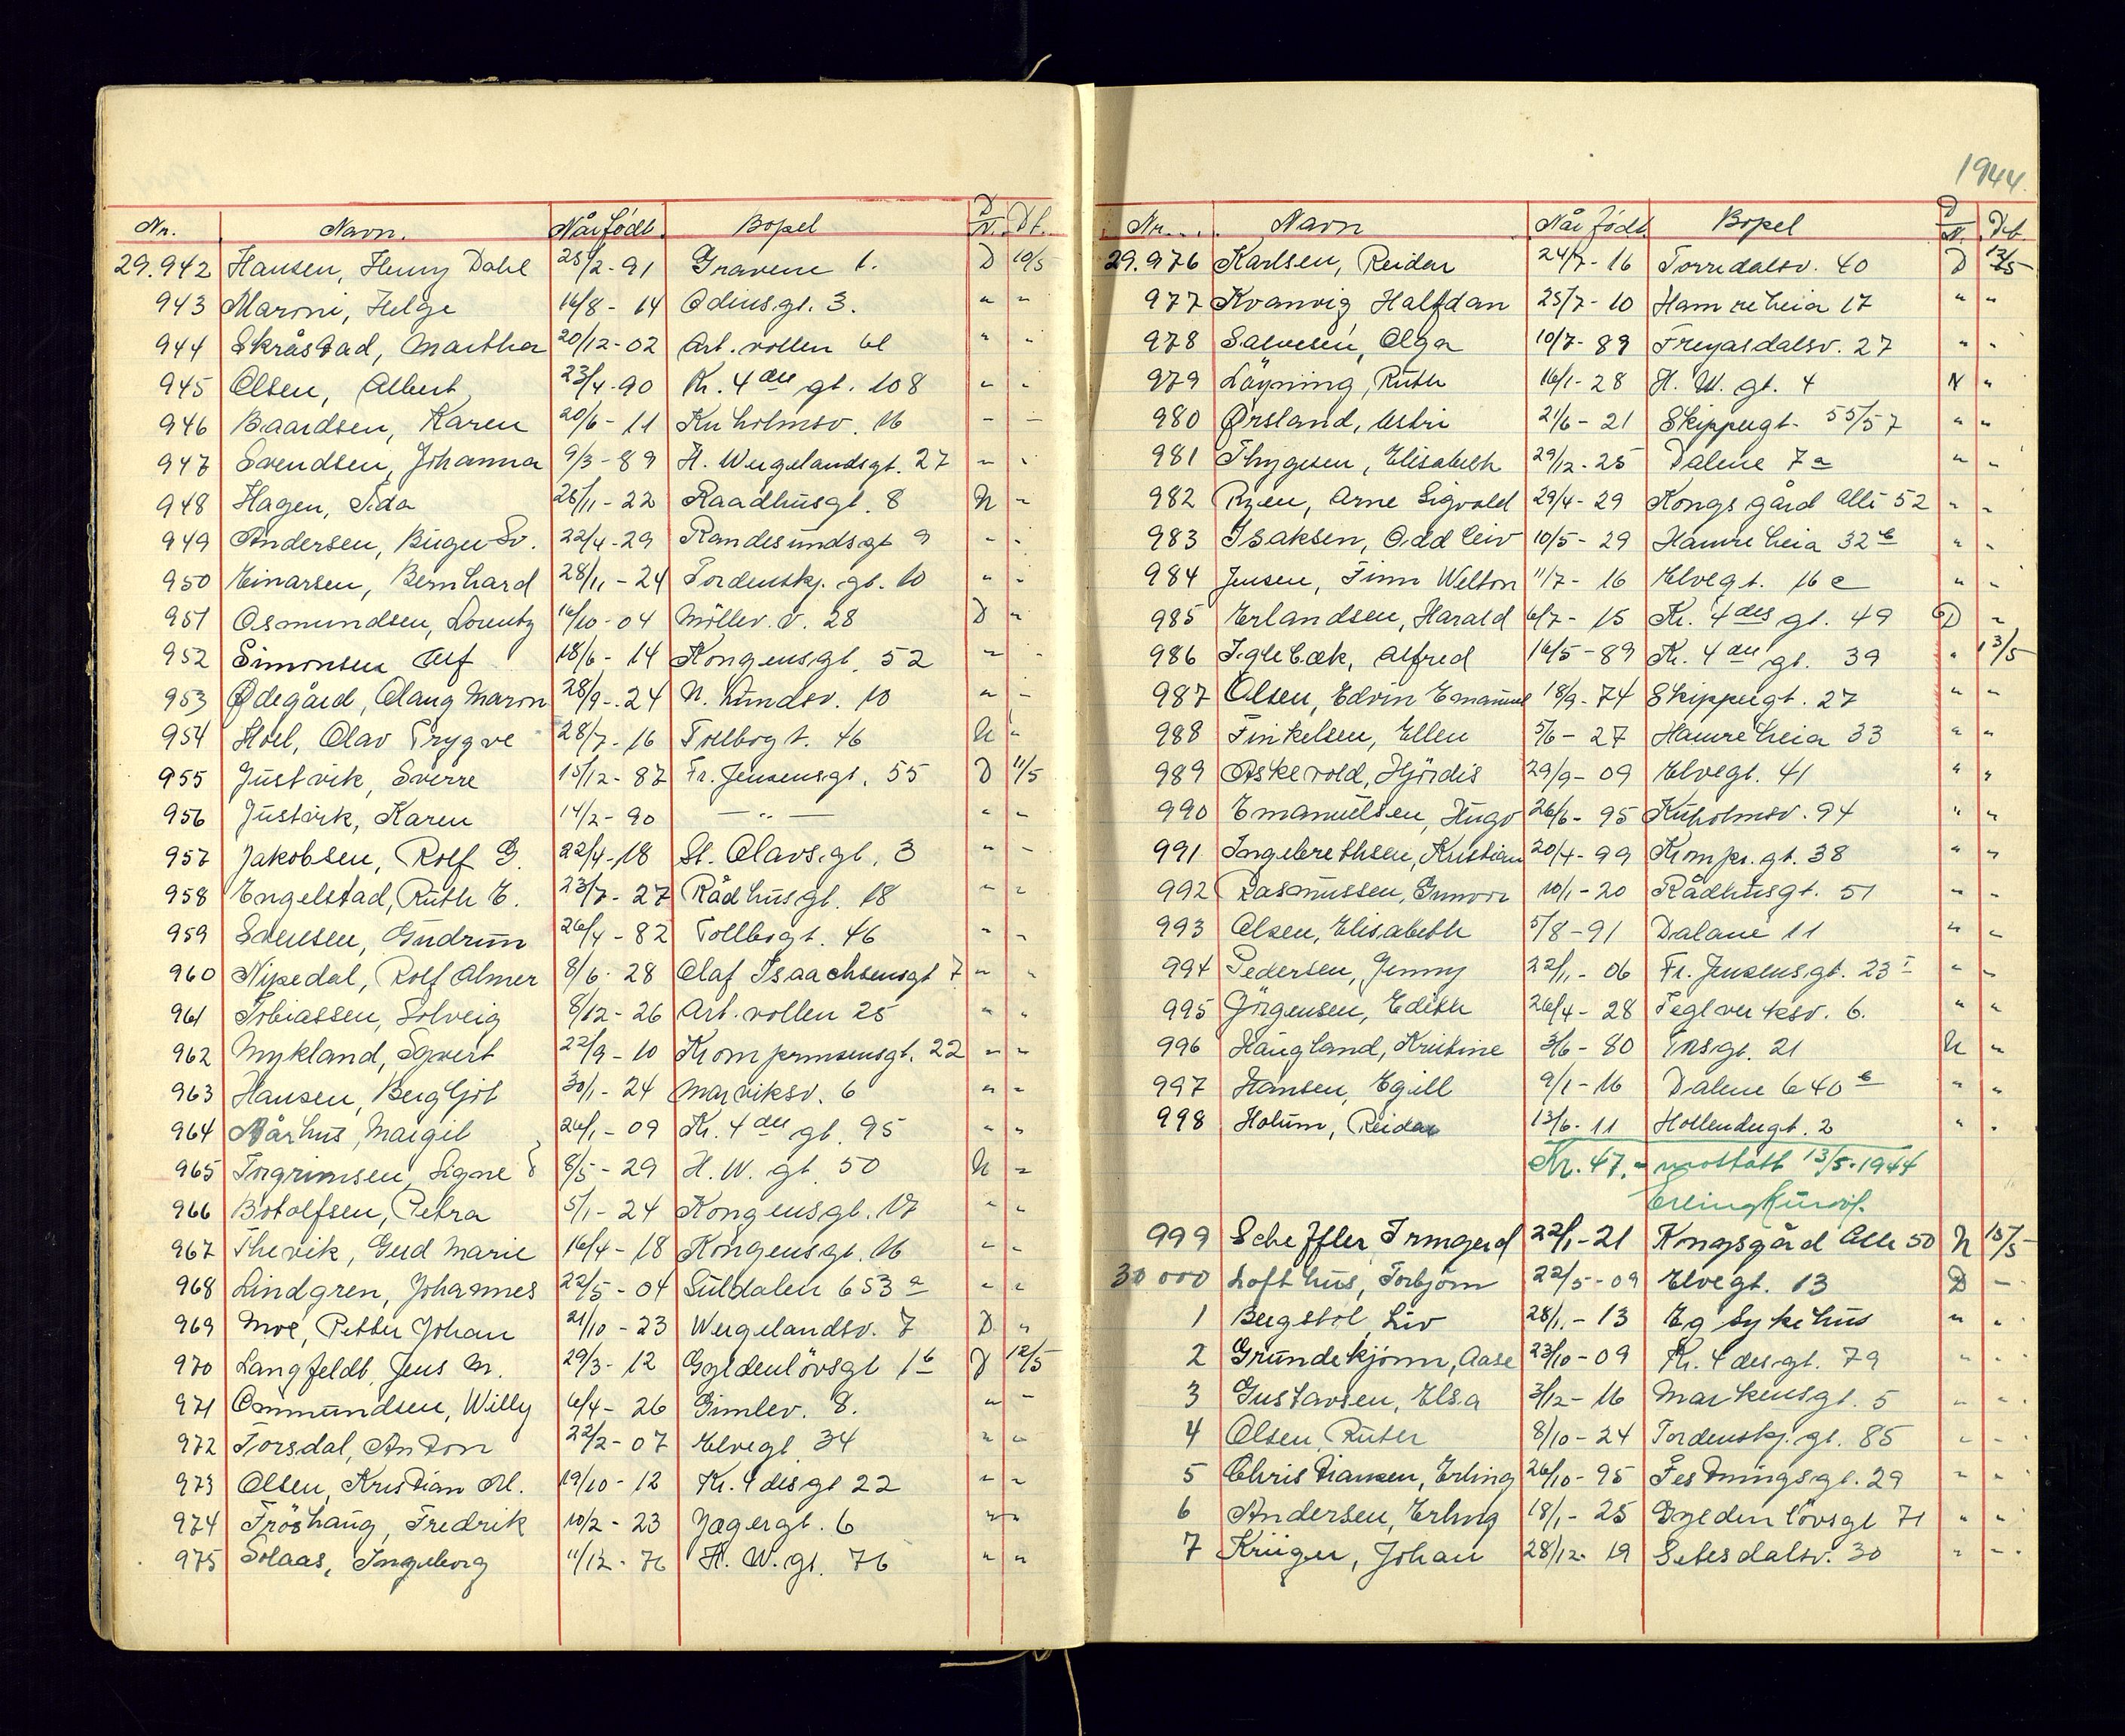 Nr. Navn. Når født. Bopel D/N. Dt.
29.942 Hansen, Henny Dahl 25/2-91 Gravene 1. D 10/5
943 Maroni, Helge 16/8-14 Odinsgt. 3. " "
944 Skråstad, Martha 20/12-02 Arb.vollen 61 " "
945 Olsen, Albert 23/4-90 Kr. 4des gt. 108 " "
946 Baardsen, Karen 20/6-11 Kuholmsv. 16 – –
947 Svendsen, Johanna 9/3-89 H. Wergelandsgt. 27 " "
948 Hagen, Tida 25/11-22 Raadhusgt. 8 N "
949 Andersen, Birger Sv. 22/4-29 Randesundsgt 9 " "
950 Einarsen, Bernhard 28/11-24 Tordenskj. gt. 10 " "
951 Osmundsen, Lorentz 16/10-04 Möllev. v. 28 D "
952 Simonsen Alf 18/6-14 Kongensgt. 52 " "
953 Ødegård, Olaug Maron 28/9-24 N. Lundsv. 10 " "
954 Hoel, Olav Trygve 28/7-16 Tollbogt. 46 N "
955 Justvik, Sverre 15/12-87 Fr. Jensensgt. 55 D 11/5
956 Justvik, Karen 14/2-90 — " — " "
957 Jakobsen, Rolf G. 22/4-18 St. Olavsgt. 3 " "
958 Engelstad, Ruth E. 23/7-27 Rådhusgt. 18 " "
959 Svensen, Gudrun 26/4-82 Tollbogt. 46 " "
960 Nipedal, Rolf Almer 8/6-28 Olaf Isaachsensgt 7. " "
961 Tobiassen, Solveig 8/12-26 Arb.vollen 25 " "
962 Nykland, Syvert 22/9-10 Kronprinsensgt. 22 " "
963 Hansen, Bergljot 30/1-24 Marviksv. 6 " "
964 Aårhus, Margit 26/1-09 Kr. 4des gt. 95 " "
965 Torgrimsen, Signe 8/5-29 H. W. gt. 50 N "
966 Botolfsen, Petra 5/1-24 Kongensgt. 17 " "
967 Thevik, Gerd Marie 16/4-18 Kongensgt. 16 " "
968 Lindgren, Johannes 22/5-04 Suldalen 653 a " "
969 Moe, Petter Johan 21/10-23 Wergelandsv. 7 D. "
970 Langfeldt, Jens M. 29/3-12 Gyldenlövsgt 1b D 12/5
971 Ommundsen, Willy 6/4-26 Gimlev. 8. " "
972 Torsdal, Anton 22/2-07 Elvegt. 34 " "
973 Olsen, Kristian M. 19/10-12 Kr. 4des gt 22 " "
974 Fröshaug, Fredrik 10/2-23 Jægergt. 6 " "
975 Solaas, Ingeborg 11/12-76 H. W. gt. 76 " "
1944.
Nr. Navn Når født Bopel D/N. Dt.
29.976 Karlsen, Reidar 24/7-16 Torridalsv. 40 D 12/5
977 Kvanvig Halfdan 25/7-10 Hamreheia 17 " "
978 Salvesen, Olga 10/7-89 Freyasdalsv. 27 " "
979 Löyning, Ruth 16/1-28 H. W. gt. 4 N "
980 Ørsland, Astri 21/6-21 Skippergt. 55/57 " "
981 Thygesen, Elisabeth 29/12-25 Dalene 7 a " "
982 Ryen, Arne Sigvald 29/4-29 Kongsgård Allé 52 " "
983 Isaksen, Oddleiv 10/5-29 Hamreheia 32 b " "
984 Jensen, Finn Welton 11/7-16 Elvegt. 16 c " "
985 Erlandsen, Harald 6/7-15 Kr. 4des gt. 49 D "
986 Iglebæk, Alfred 16/5-89 Kr. 4des gt. 39 " 13/5
987 Olsen, Edvin Emanuel 18/9-74 Skippergt. 27 " "
988 Finkelsen, Ellen 5/6-27 Hamreheia 33 " "
989 Askevold, Hjördis 29/9-09 Elvegt. 41 " "
990 Emanuelsen, Hugo 26/6-95 Kuholmsv. 94 " "
991 Ingebrethsen, Kristian 20/4-99 Kronpr. gt. 38 " "
992 Rasmussen, Gunvor 10/1-20 Rådhusgt. 51 " "
993 Olsen, Elisabeth 5/8-91 Dalane 11 " "
994 Pedersen, Jenny 22/1-06 Fr. Jensensgt. 23 I " "
995 Jörgensen, Edith 26/4-28 Teglverksv. 6. " "
996 Haugland, Kristine 3/6-80 Torsgt. 21 N "
997 Hansen, Egill 9/1-16 Dalene 640 b " "
998 Holum, Reidar 13/6-11 Hollendergt. 2 " "
Kr. 47.- mottatt 13/5-1944
999 Scheffler, Irmgerd 22/1-21 Kongsgård Allé 50 N 15/5
30 000 Lofthus, Torbjörn 22/5-09 Elvegt. 13 D –
1 Bergstöl, Liv 28/1-13 Eg Sykehus " "
2 Grundekjönn, Aase 23/10-09 Kr. 4des gt. 79 " "
3 Gustavsen, Elsa 3/12-16 Markensgt. 5 " "
4 Olsen, Ruth 8/10-24 Tordenskj. gt. 85 " "
5 Christiansen, Erling 26/10-95 Festningsgt. 29 " "
6 Andersen, Erling 18/1-25 Gyldenlövsgt 71 " "
7 Krüger, Johan 28/12-19 Setesdalsv. 30 " "